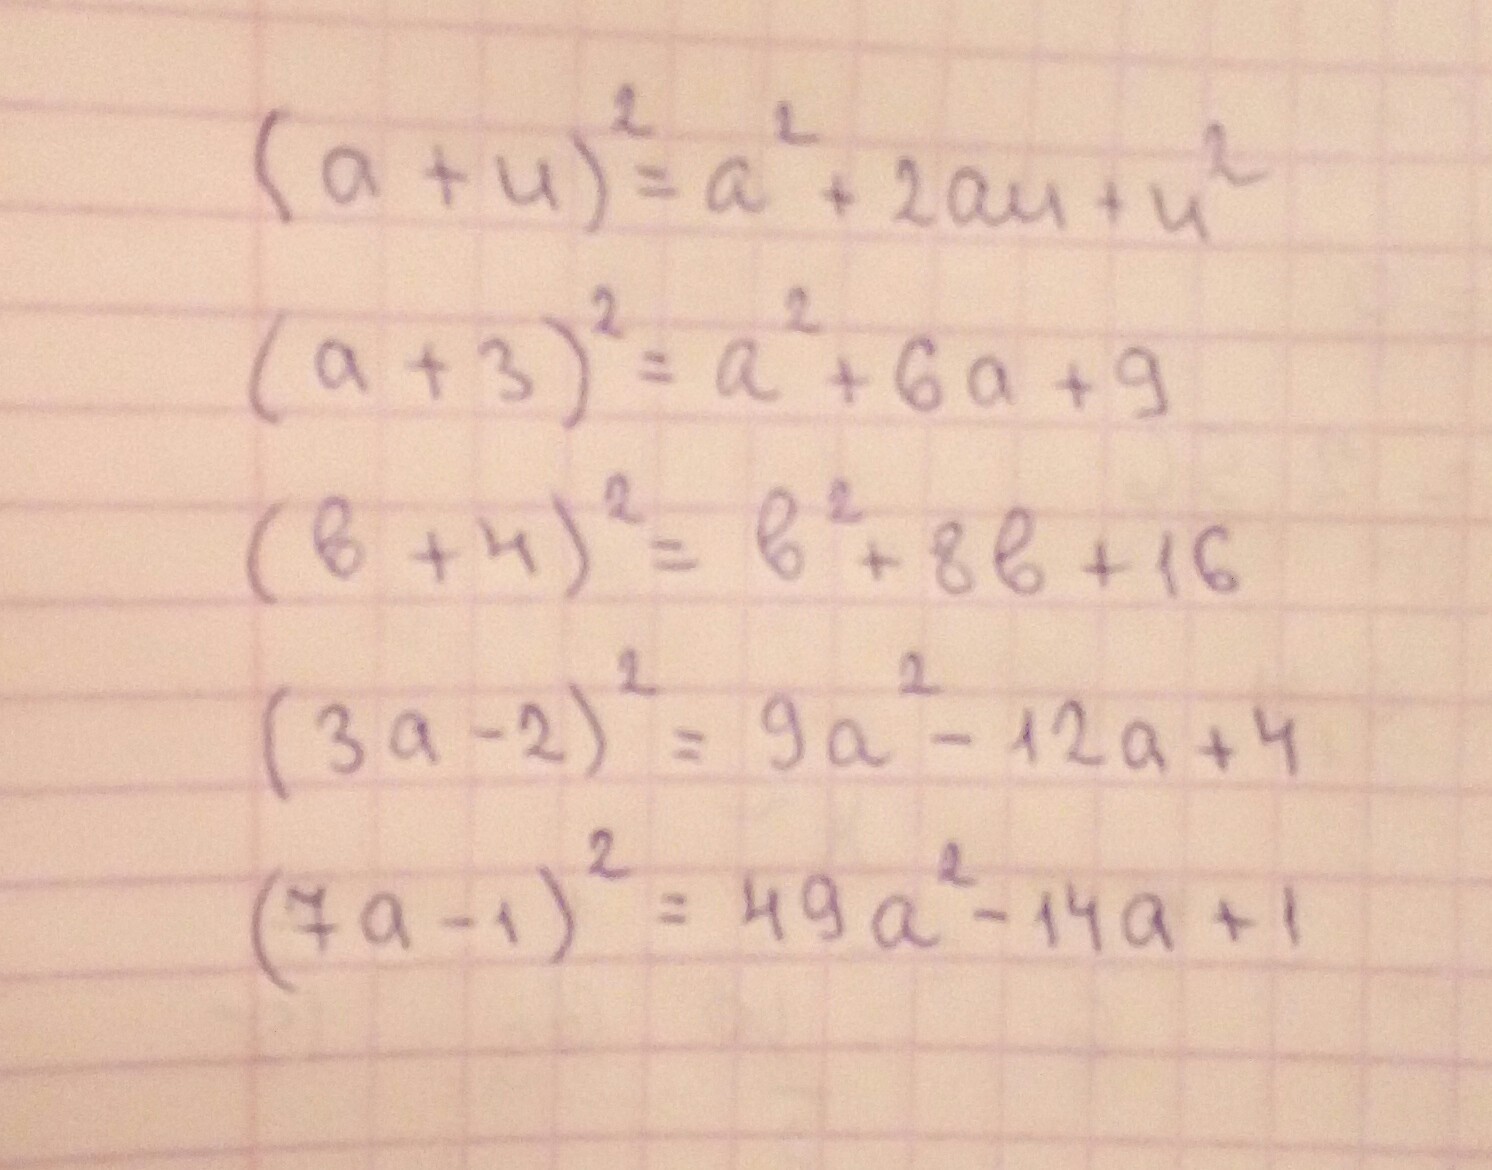 (a + u)² = a² + 2au + u²
(a + 3)² = a² + 6a + 9
(в + 4)² = в² + 8в + 16
(3a - 2)² = 9a² - 12a + 4
(7a - 1)² = 49a² - 14a + 1